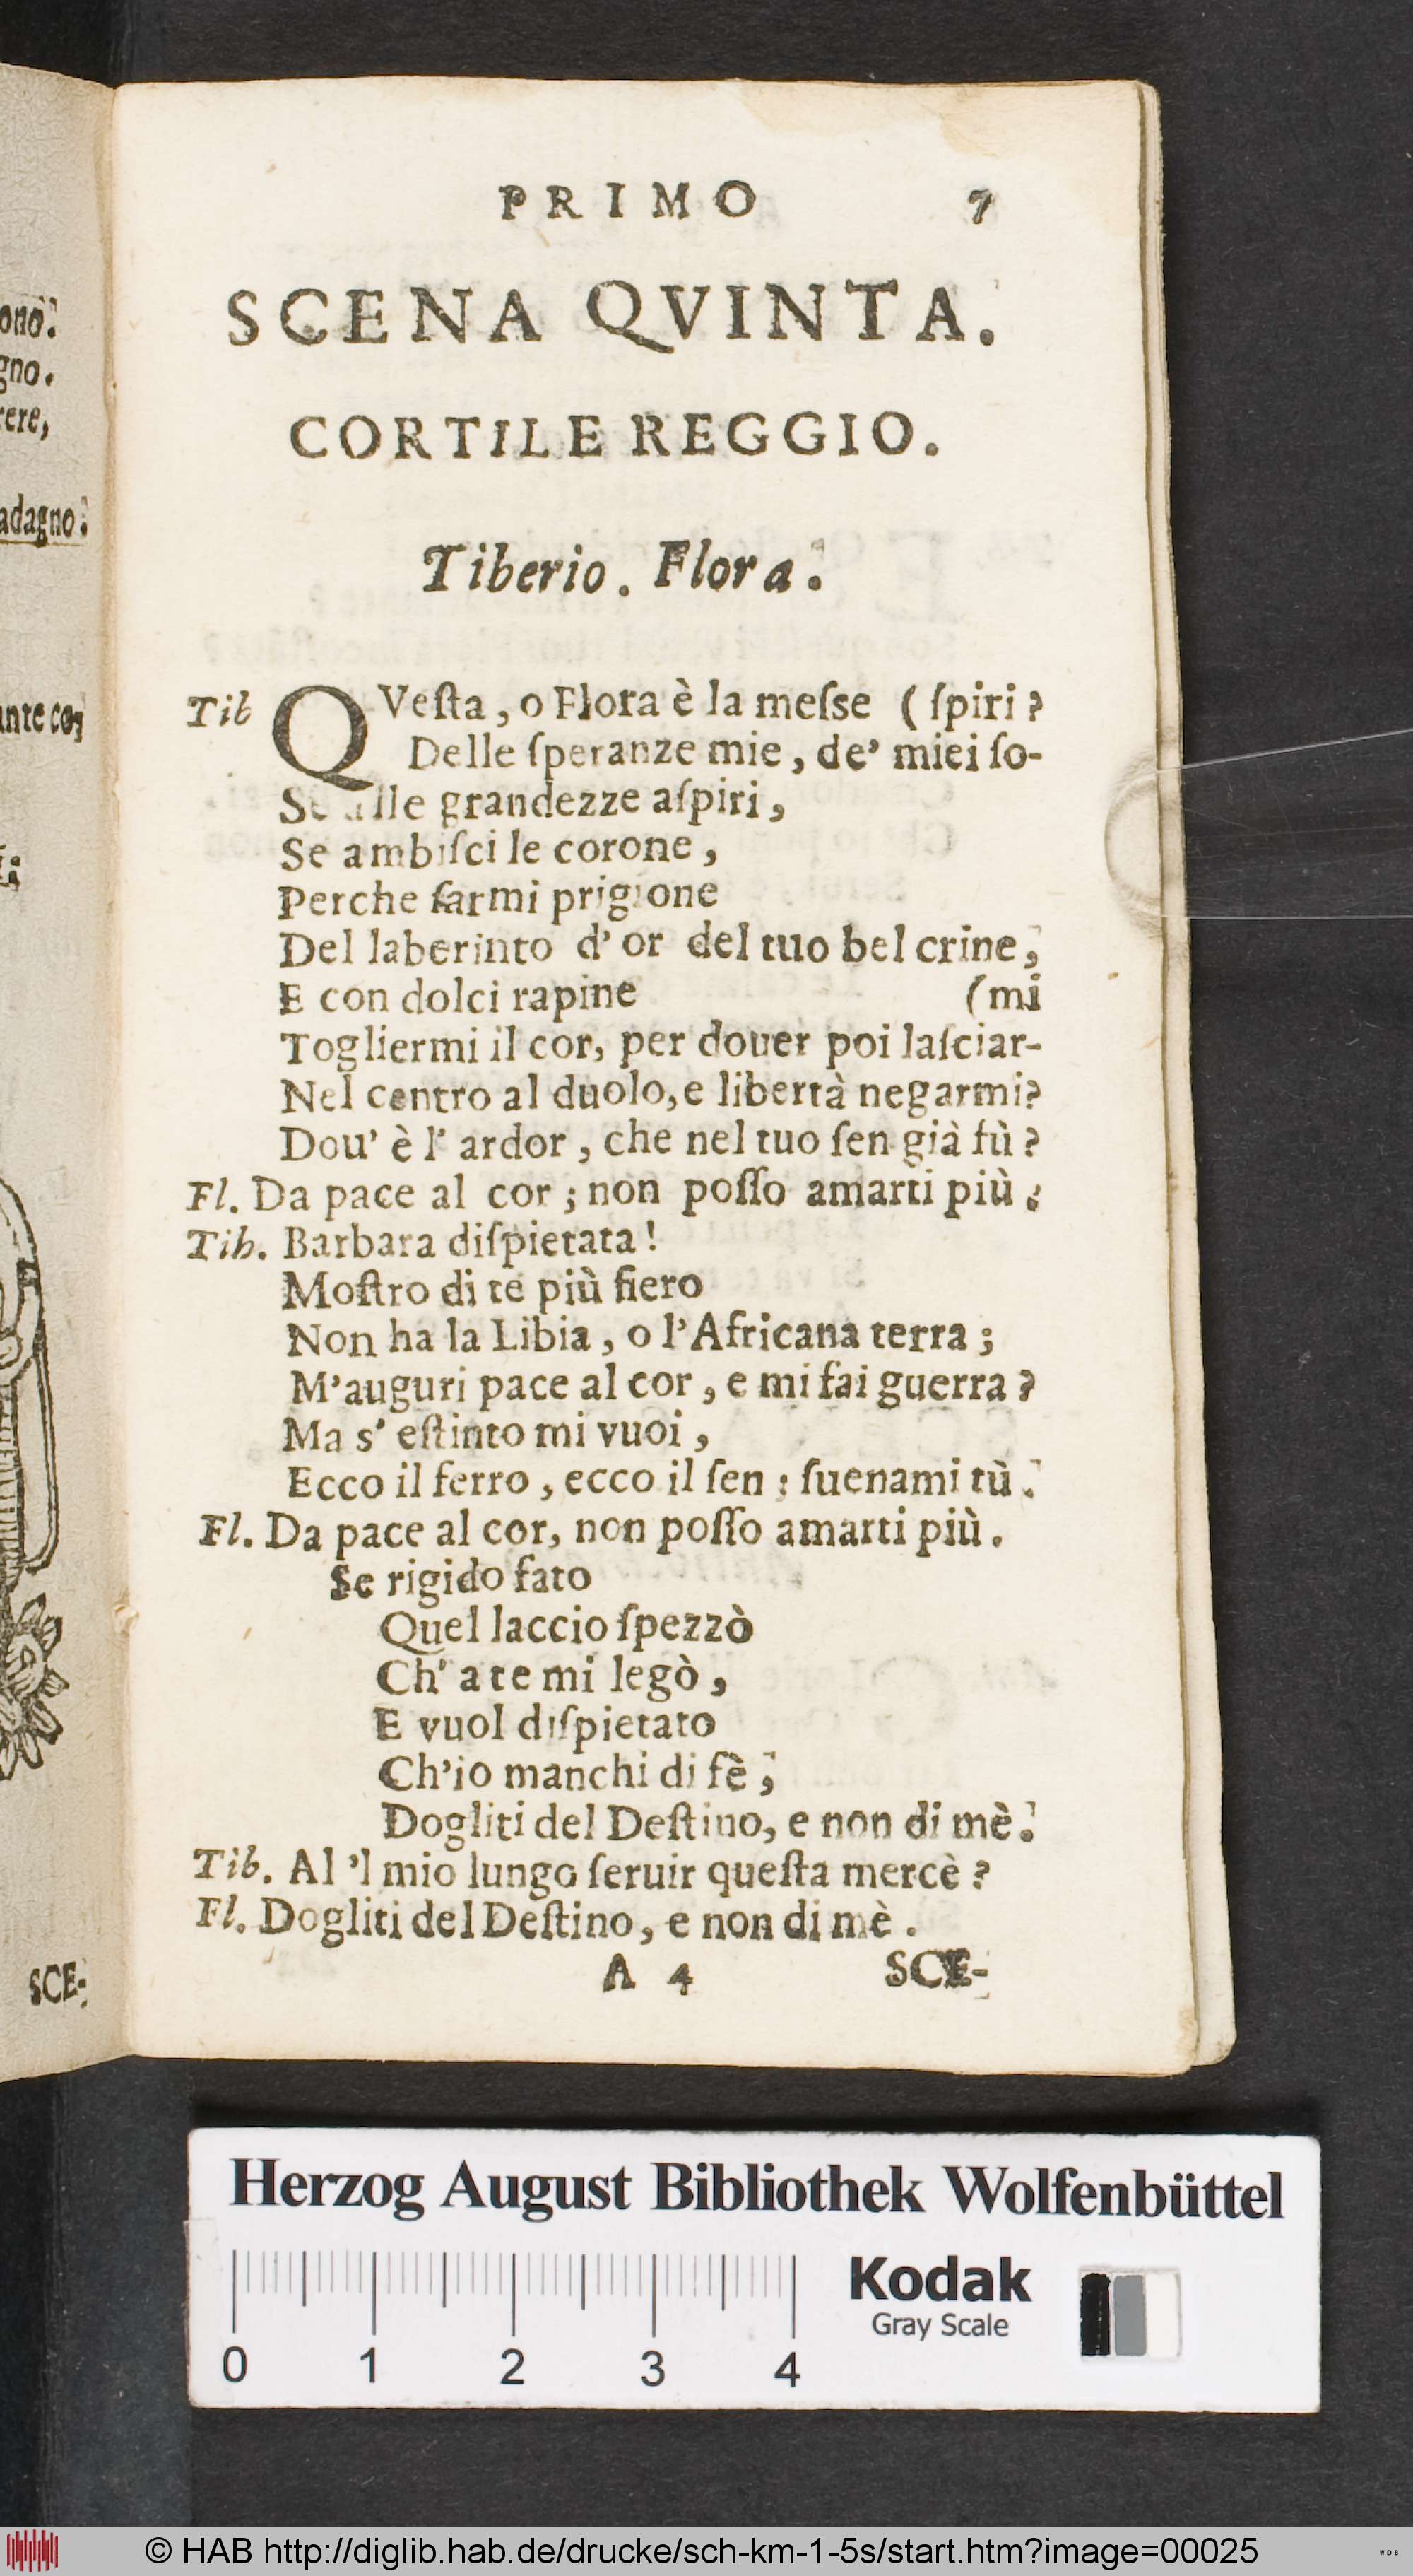 ono.
gno.
rere,
adagno.
ante co,
SCE-
PRIMO 7
SCENA QVINTA.
CORTILE REGGIO.
Tiberio. Flora.
Tib QVeſta, o Flora è la meſſe (ſpiri?
Delle ſperanze mie, de' miei ſo-
Se alle grandezze aſpiri,
Se ambiſci le corone,
Perche farmi prigione
Del laberinto d'or del tuo bel crine,
E con dolci rapine (mi
Togliermi il cor, per douer poi laſciar-
Nel centro al duolo, e libertà negarmi?
Dou' è l'ardor, che nel tuo ſen già fù?
Fl. Da pace al cor; non poſſo amarti più.
Tib. Barbara diſpietata!
Moſtro di te più fiero
Non ha la Libia, o l'Africana terra;
M'auguri pace al cor, e mi fai guerra?
Ma s'eſtinto mi vuoi,
Ecco il ferro, ecco il ſen; ſuenami tù.
Fl. Da pace al cor, non poſſo amarti più.
Se rigido fato
Quel laccio ſpezzò
Ch'a te mi legò,
E vuol diſpietato
Ch'io manchi di fè;
Dogliti del Deſtino, e non di mè.
Tib. Al 'l mio lungo ſeruir queſta mercè?
Fl. Dogliti del Deſtino, e non di mè.
A 4 SCE-
Herzog August Bibliothek Wolfenbüttel
0 1 2 3 4
Kodak
Gray Scale
© HAB http://diglib.hab.de/drucke/sch-km-1-5s/start.htm?image=00025